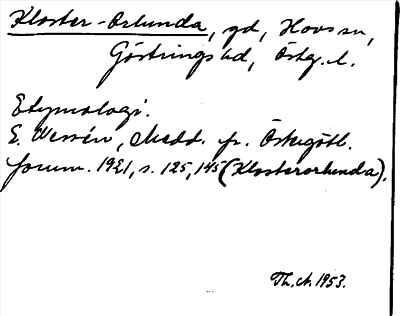 Kloster-Orlunda, gd, Hovs sn,
Göstrings hd, Östg. l.
Etymologi.
E. Wessén, Medd. fr. Östergötl.
fornm. 1921, s. 125, 145 (Klosterorlunda).
Th. A. 1953.